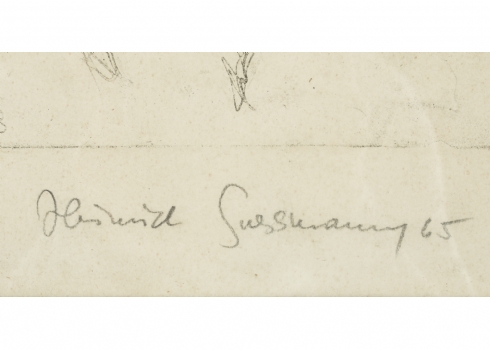 Heinrich Sussmann 65